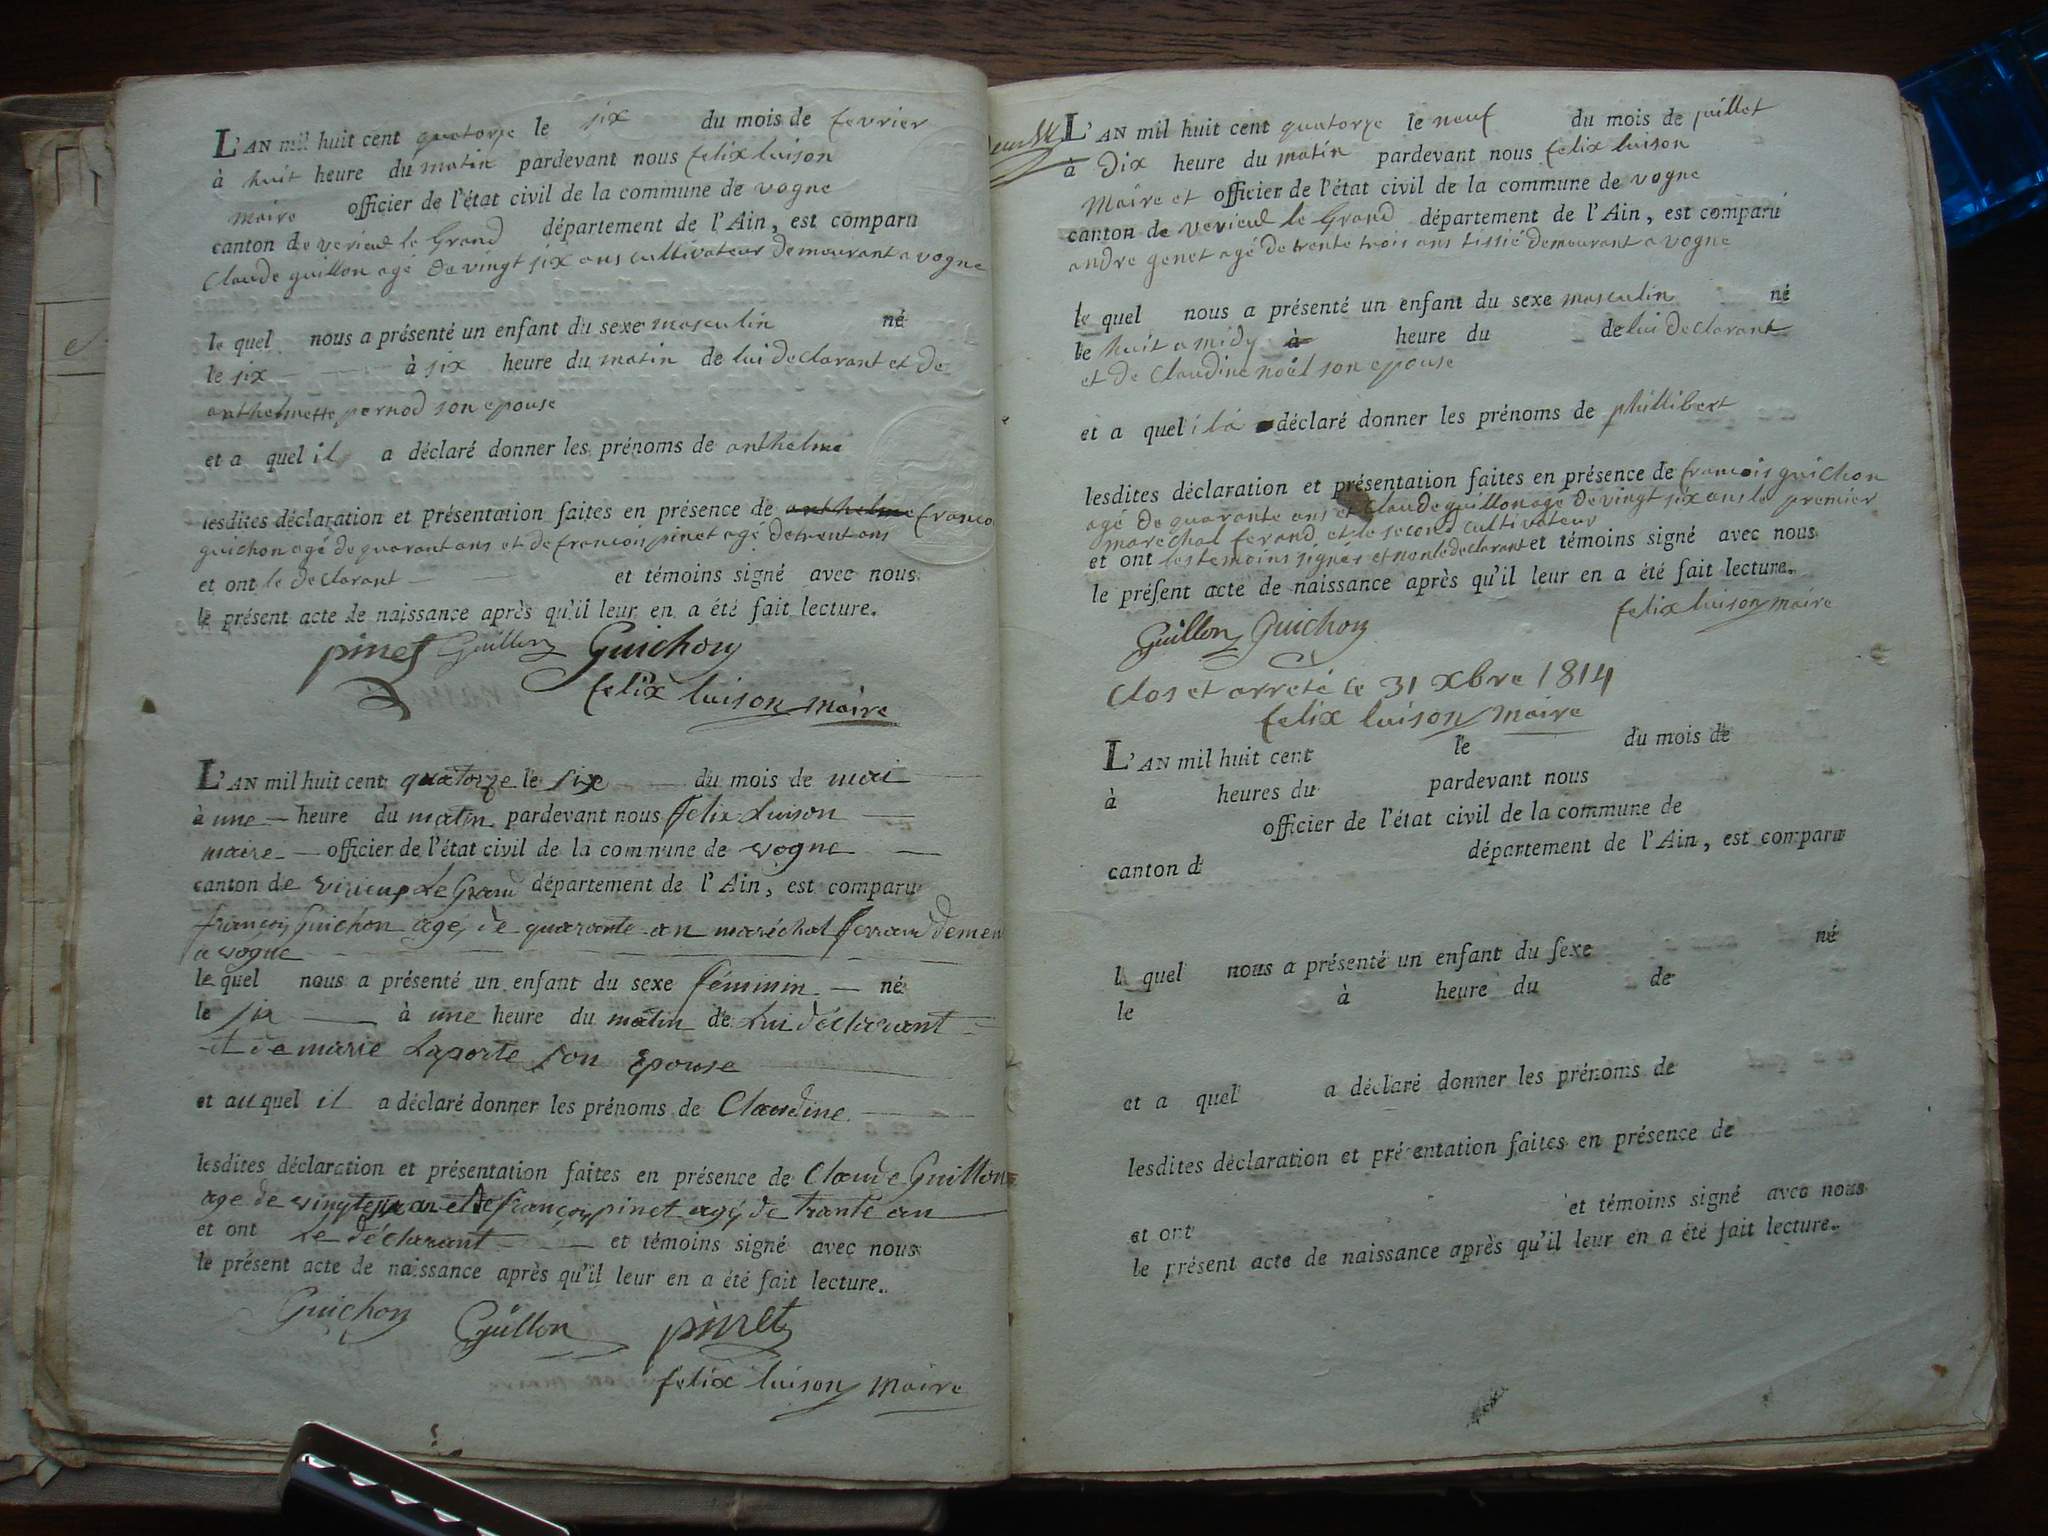 L'AN mil huit cent quatorze le six du mois de fevrier
à huit heure du matin pardevant nous felix luison
maire officier de l'état civil de la commune de vogne
canton de verieu le Grand département de l'Ain, est comparu
Claude guillon agé de vingt six ans cultivateur demeurant a vogne
le quel nous a présenté un enfant du sexe masculin né
le six à six heure du matin de lui declarant et de
anthelmette pernod son epouse
et a quel il a déclaré donner les prénoms de anthelme
lesdites déclaration et présentation faites en présence de anthelme franco
guichon agé de quarant ans et de francois pinet agé de trent ans
et ont le declarant et témoins signé avec nous
le présent acte de naissance après qu'il leur en a été fait lecture.
pinet Guillon Guichon
felix luison maire
L'AN mil huit cent quatorze le six du mois de mai
à une heure du matin pardevant nous felix Luison
maire officier de l'état civil de la commune de vogne
canton de virieux Le Grand département de l'Ain, est comparu
françois Guichon agé de quarante an maréchal ferrand demeu
a vogne
le quel nous a présenté un enfant du sexe féminin né
le six à une heure du matin de Lui déclarant
et de marie Laporte son Epouse
et au quel il a déclaré donner les prénoms de Claudine
lesdites déclaration et présentation faites en présence de Claude Guillon
age de vingt six an et de françois pinet agé de trante an
et ont Le déclarant et témoins signé avec nous
le présent acte de naissance après qu'il leur en a été fait lecture.
Guichon Guillon pinet
felix luison maire
L'AN mil huit cent quatorze le neuf du mois de juillet
à dix heure du matin pardevant nous felix luison
Maire et officier de l'état civil de la commune de vogne
canton de verieu le Grand département de l'Ain, est comparu
andre genet agé de trente trois ans tissié demeurant a vogne
le quel nous a présenté un enfant du sexe masculin né
le huit a midy à heure du de lui declarant
et de Claudine noël son epouse
et a quel il a déclaré donner les prénoms de phillibert
lesdites déclaration et présentation faites en présence de francois guichon
agé de quarante ans et Claude guillon agé de vingt six ans le premier
marechal ferand et le second cultivateur
et ont les temoins signés et non le declarant et témoins signé avec nous
le présent acte de naissance après qu'il leur en a été fait lecture.
felix luison maire
Guillon Guichon
Clos et arreté le 31 xbre 1814
felix luison maire
L'AN mil huit cent le du mois de
à heures du pardevant nous
officier de l'état civil de la commune de
canton d département de l'Ain, est comparu
l quel nous a présenté un enfant du sexe né
le à heure du de
et a quel a déclaré donner les prénoms de
lesdites déclaration et présentation faites en présence de
et ont et témoins signé avec nous
le présent acte de naissance après qu'il leur en a été fait lecture.